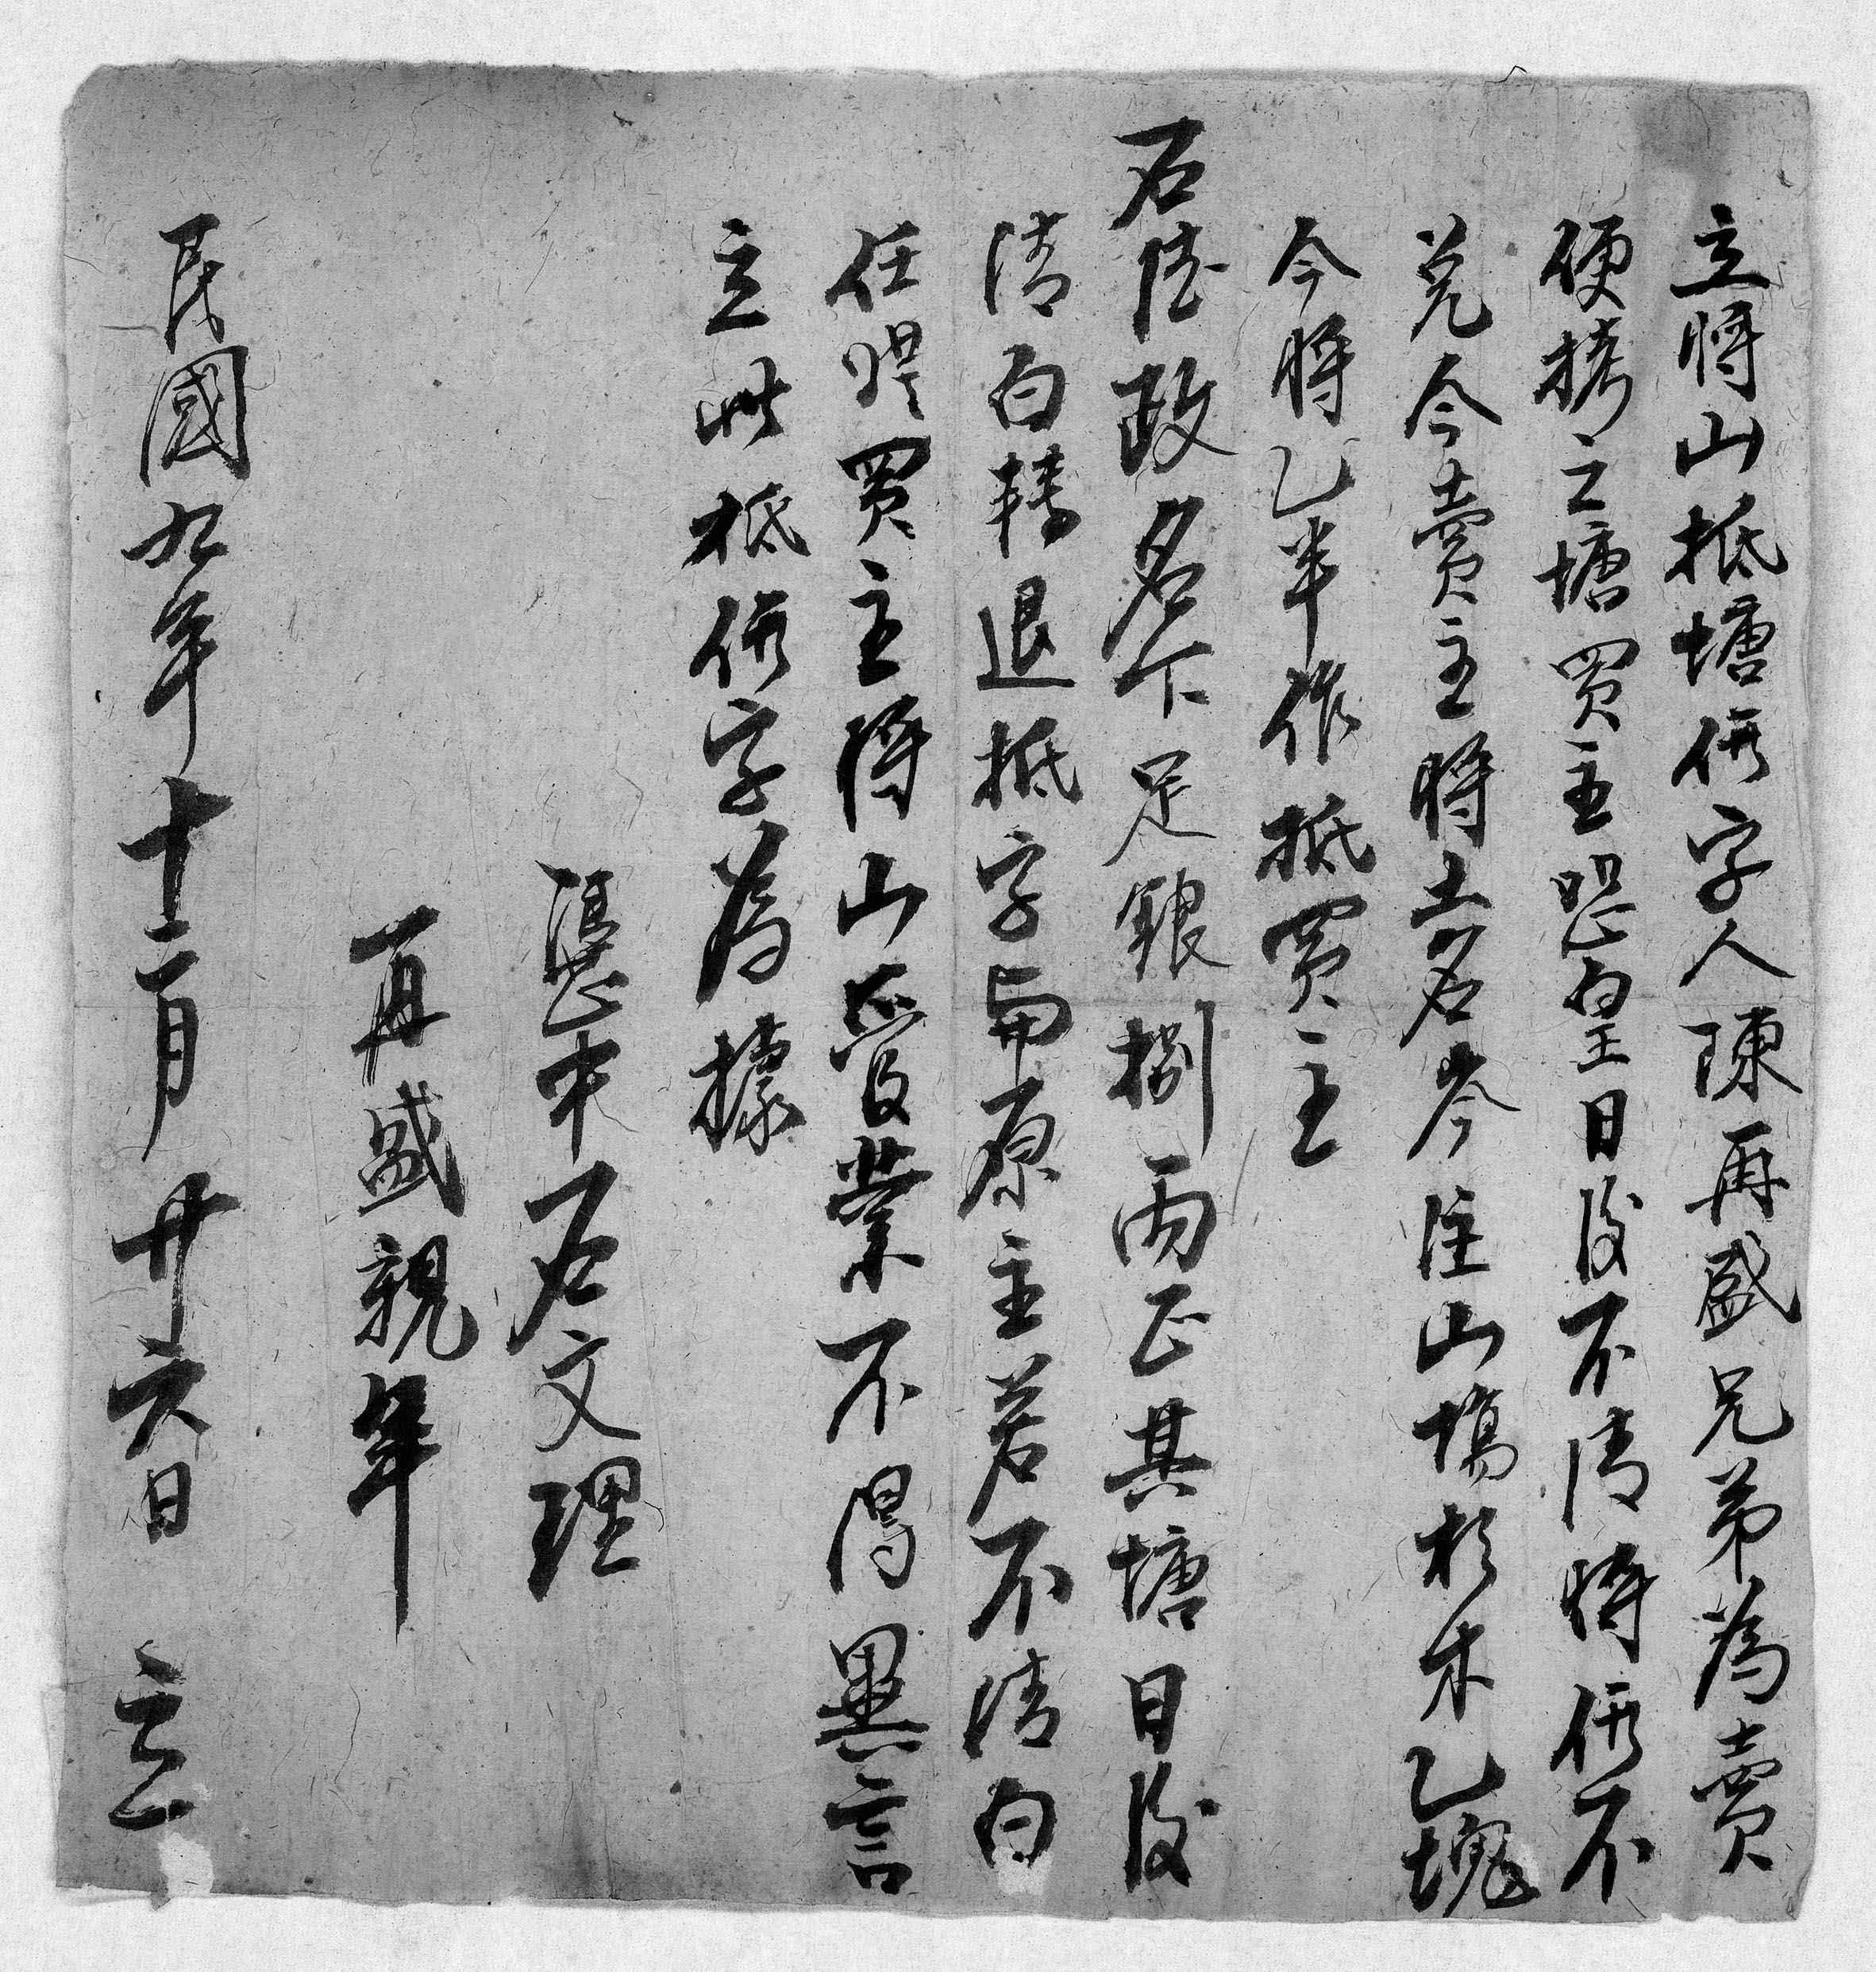 立將山抵塘価字人陳再盛兄弟為賣
便捞之塘買主恐皇日後不清將価不
兑今賣主將土名岑住山塲杉木乙塊
今將乙半作抵買主
石陸政名下足銀捌兩正其塘日後
清白轉退抵字與原主若不清白
任凭買主將山管業不得異言
立此抵価字為據
憑中石文理
再盛親筆
民國九年十二月廿六日 立